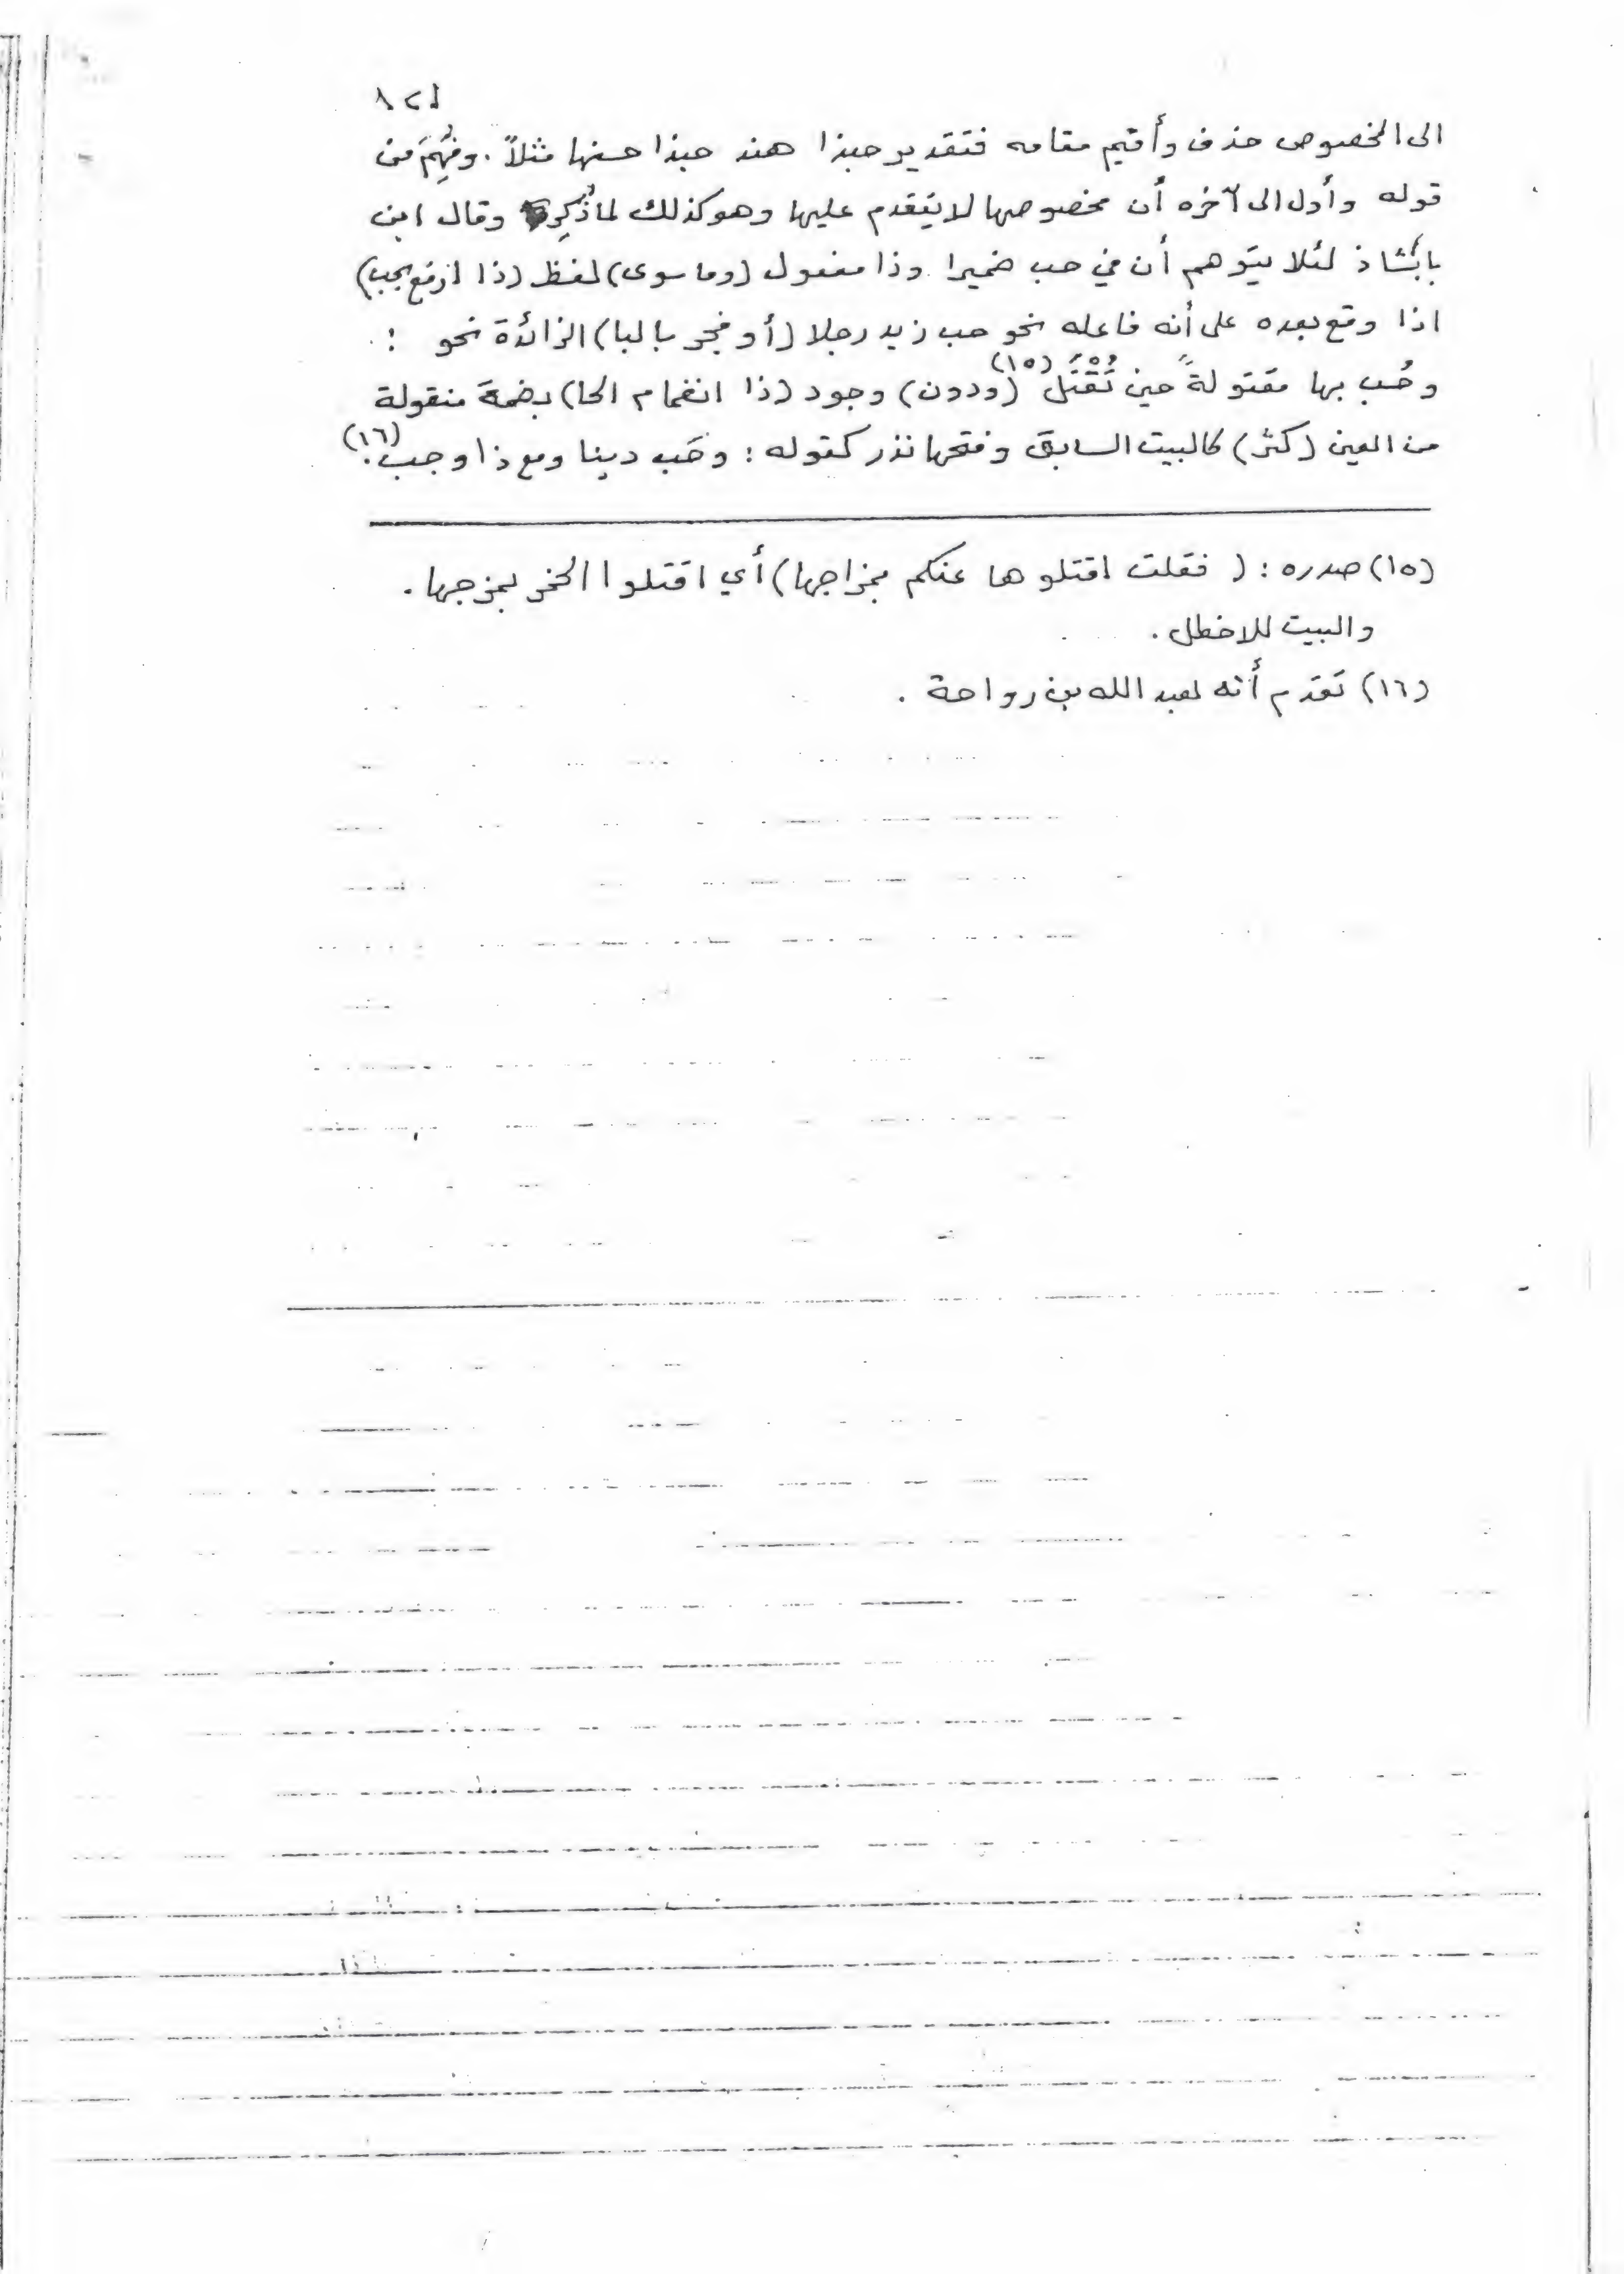 الى المخصوص حذف وأقيم مقامه فتقدير حبذا هند حبذا حسنها مثلاً . وفُهِمَ من
قوله وأول الى آخره أن مخصوصها لا يتقدم عليها وهو كذلك لما ذُكِر وقال ابن
بابشاذ لئلا يتوهم أن في حب ضميرا وذا مفعول (وما سوى) لفظ (ذا ارفع بحب)
اذا وقع بعده على أنه فاعله نحو حب زيد رجلا (أو فجر بالبا) الزائدة نحو :
وحُب بها مقتولةً حين تُقْتَلُ (١٥) (ودون) وجود (ذا انضمام الحا) بضمة منقولة
من العين (كثر) كالبيت السابق وفتحها نذر كقوله : وحَب دينا ومع ذا وجب . (١٦)
(١٥) صدره : ( فقلت اقتلوها عنكم بمزاجها) أي اقتلوا الخمر بمزجها .
والبيت للاخطل .
(١٦) تقدم أنه لعبد الله بن رواحة .